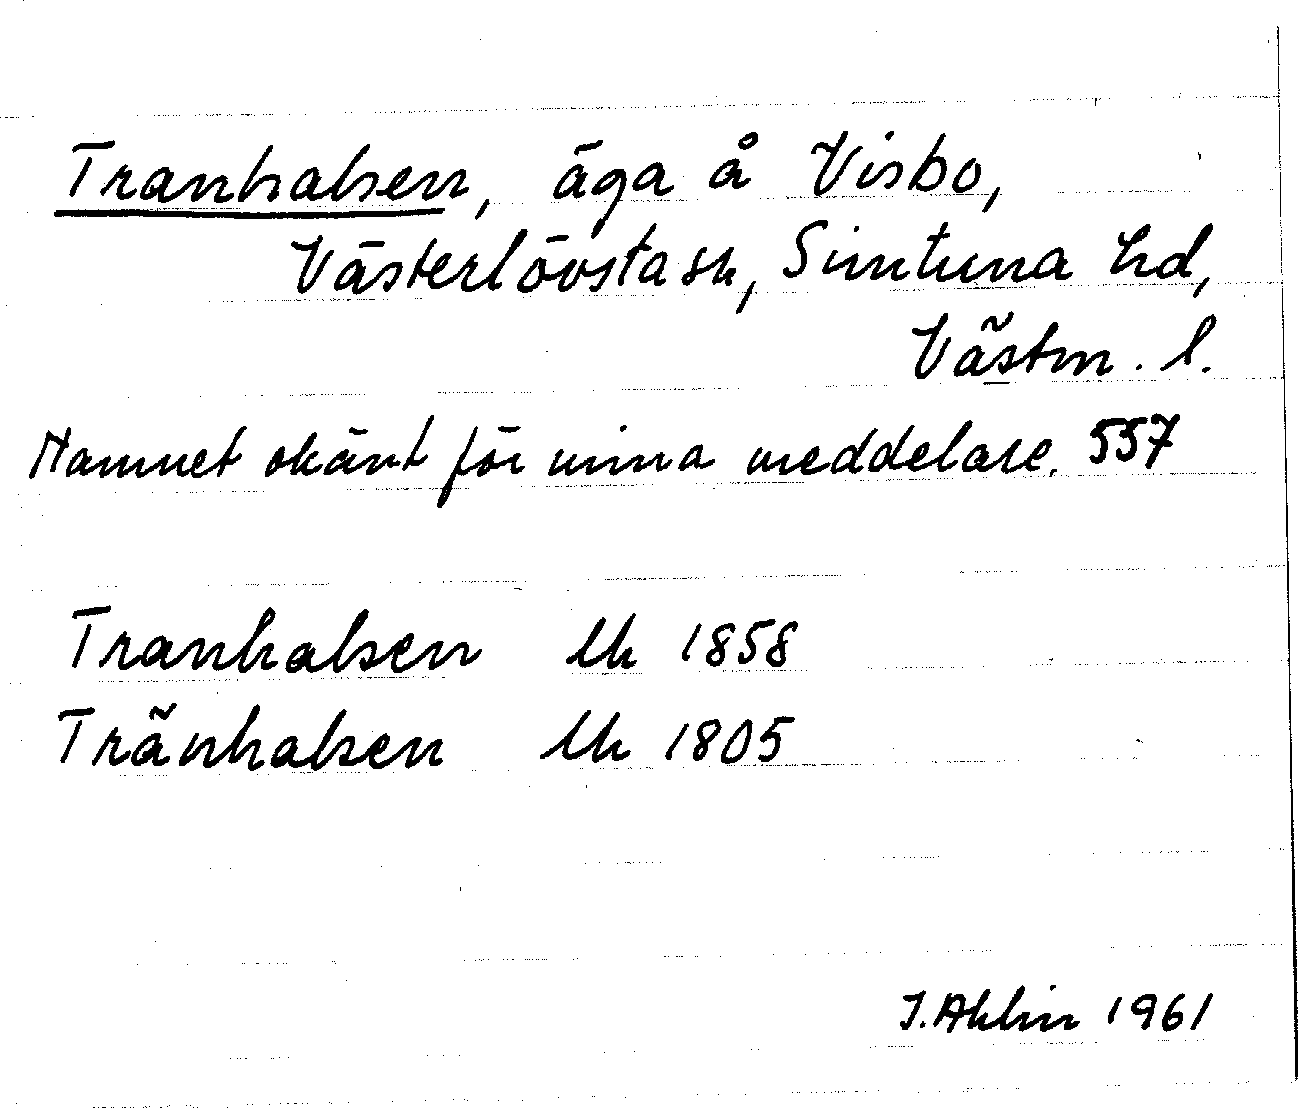 Tranhalsen, äga å Visbo,
Västerlövsta sn, Simtuna hd,
Västm. l.
Namnet okänt för mina meddelare. 557
Tranhalsen lk 1858
Tränhalsen lk 1805
J. Ahlin 1961